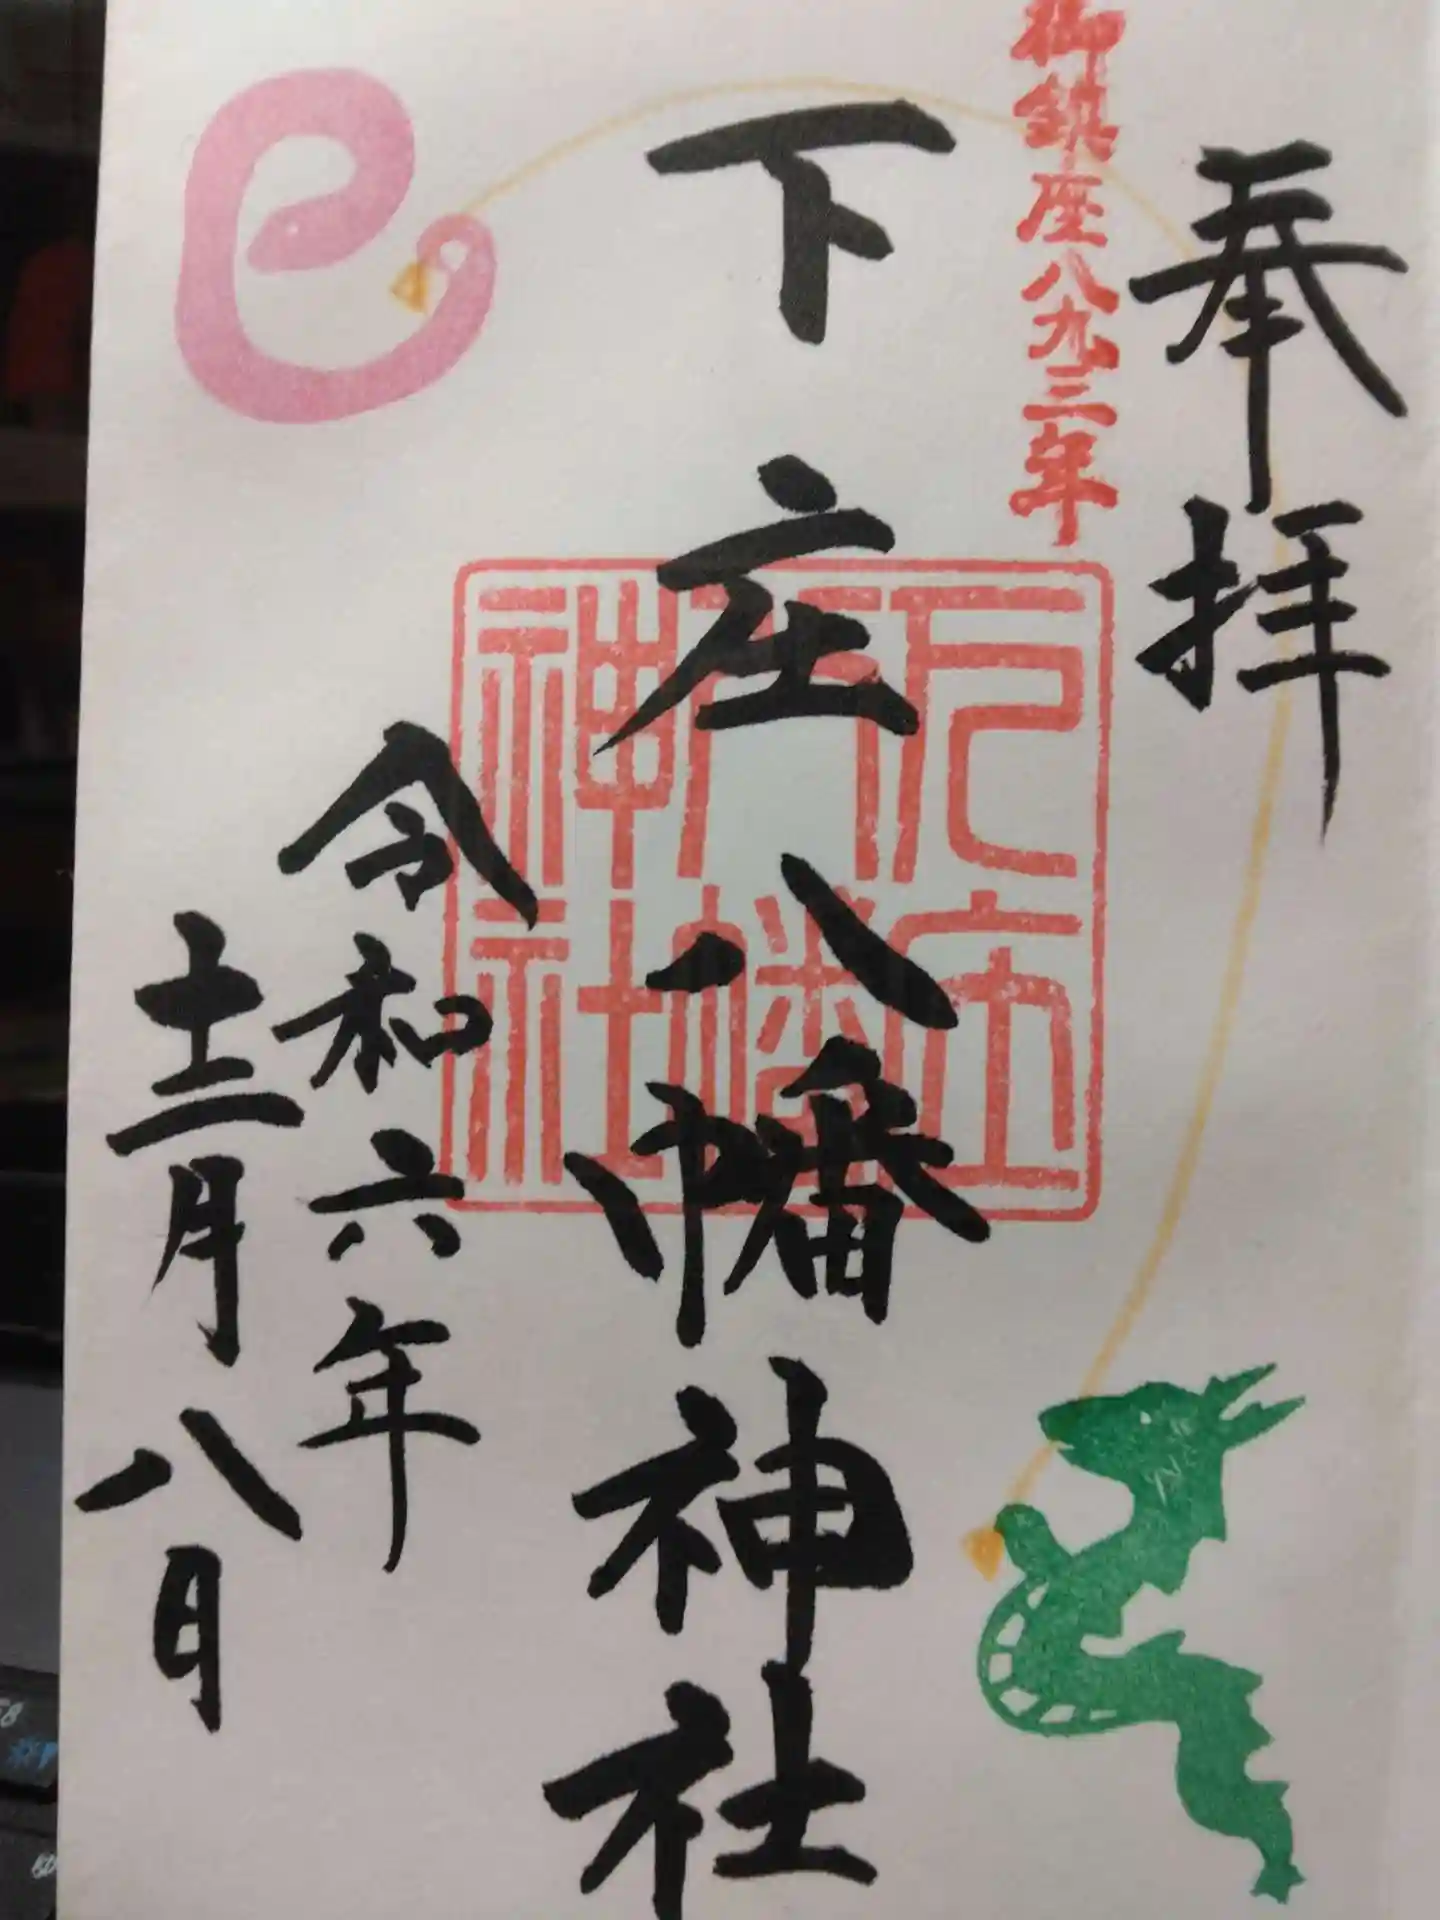 奉拝
御鎮座八九三年
下庄八幡神社
下庄
八幡
神社
令和六年
十二月八日